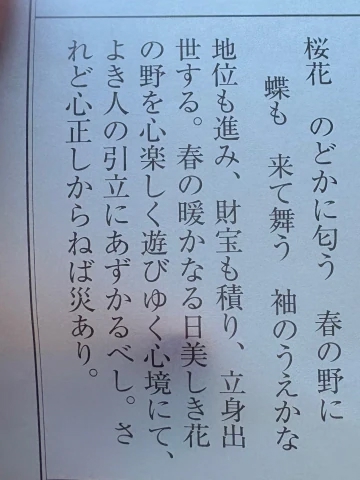 桜花　のどかに匂う　春の野に
蝶も　来て舞う　袖のうえかな
地位も進み、財宝も積り、立身出
世する。春の暖かなる日美しき花
の野を心楽しく遊びゆく心境にて、
よき人の引立にあずかるべし。さ
れど心正しからねば災あり。